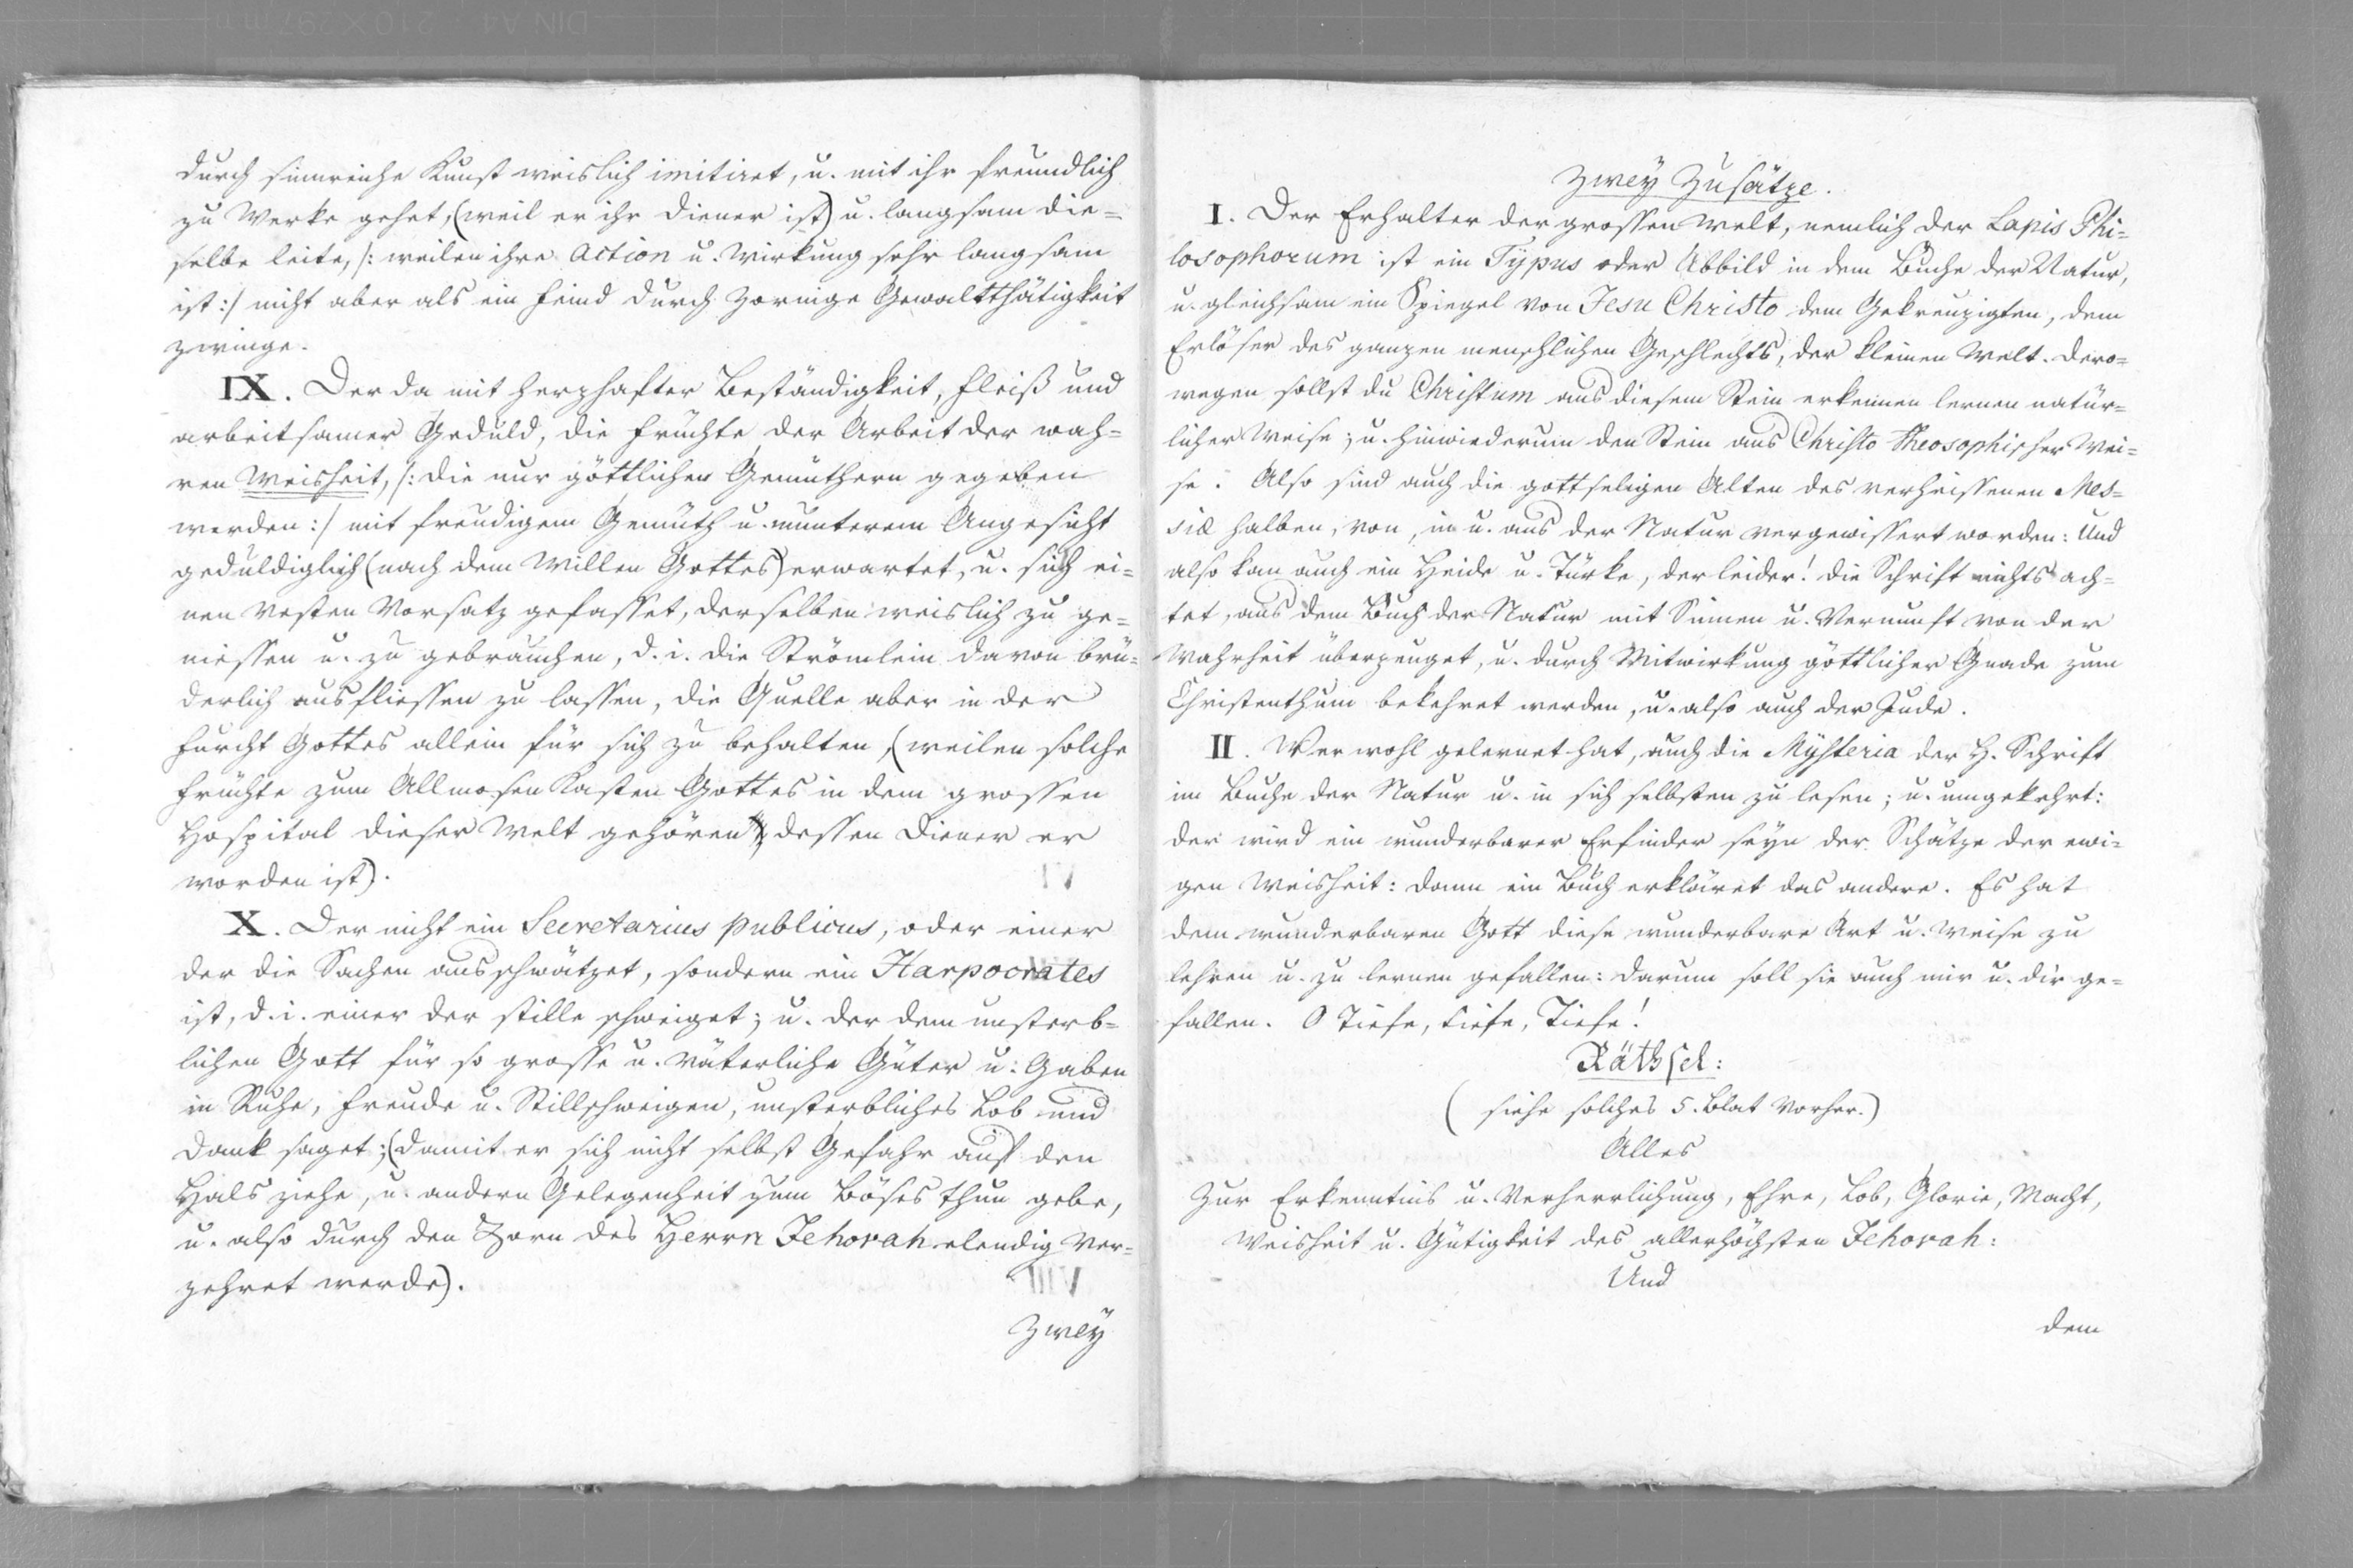 durch sinnreiche Kunst weislich imitiret, u. mit ihr freundlich
zu Werke gehet, (weil er ihr Diener ist) u. langsam die=
selbe leite, /: weilen ihre Action u. Wirkung sehr langsam
ist :/ nicht aber als ein Feind durch zornige Gewaltthätigkeit
zwinge.
IX. Der da mit herzhafter Beständigkeit, Fleiß und
arbeitsamer Geduld, die Früchte der Arbeit der wah=
ren Weisheit, /: die nur göttlichen Gemüthern gegeben
werden :/ mit freudigem Gemüth u. munterem Angesicht
geduldiglich (nach dem Willen Gottes) erwartet, u. sich ei=
nen vesten Vorsatz gefasset, derselben weislich zu ge=
niessen u. zu gebrauchen, d. i. die Strömlein davon brü=
derlich ausfliessen zu lassen, die Quelle aber in der
Furcht Gottes allein für sich zu behalten, (weilen solche
Früchte zum Allmosen Kasten Gottes in dem grossen
Hospital dieser Welt gehören, dessen Diener er
worden ist).
X. Der nicht ein Secretarius publicus, oder einer
der die Sachen ausschwätzet, sondern ein Harpocrates
ist, d. i. einer der stille schweiget; u. der dem unsterb=
lichen Gott für so grosse u. väterliche Güter u. Gaben
in Ruhe, Freude u. Stillschweigen, unsterbliches Lob und
Dank saget; (damit er sich nicht selbst Gefahr auf den
Hals ziehe, u. andern Gelegenheit zum Böses thun gebe,
u. also durch den Zorn des Herrn Jehovah elendig ver=
zehret werde).
Zwey
Zwey Zusätze.
I. Der Erhalter der grossen Welt, nemlich der Lapis Phi=
losophorum ist ein Typus oder Abbild in dem Buche der Natur,
u. gleichsam ein Spiegel von Jesu Christo dem Gekreuzigten, dem
Erlöser des ganzen menschlichen Geschlechts, der kleinen Welt. Dero=
wegen sollst du Christum aus diesem Stein erkennen lernen natür=
licher Weise; u. hinwiederum den Stein aus Christo theosophischer Wei=
se. Also sind auch die gottseligen Alten des verheissenen Mes=
siæ halben, von, in u. aus der Natur vergewissert worden: Und
also kan auch ein Heide u. Türke, der leider! die Schrift nichts ach=
tet, aus dem Buch der Natur mit Sinnen u. Vernunft von der
Wahrheit überzeuget, u. durch Mitwirkung göttlicher Gnade zum
Christenthum bekehret werden, u. also auch der Jude.
II. Wer wohl gelernet hat, auch die Mysteria der H. Schrift
im Buche der Natur u. in sich selbsten zu lesen; u. umgekehrt:
der wird ein wunderbarer Erfinder seyn der Schätze der ewi=
gen Weisheit: dann ein Buch erkläret das andere. Es hat
dem wunderbaren Gott diese wunderbare Art u. Weise zu
lehren u. zu lernen gefallen: darum soll sie auch mir u. dir ge=
fallen. O Tiefe, Tiefe, Tiefe!
Räthsel:
( siehe solches 5. Blat vorher.)
Alles
Zur Erkenntnis u. Verherrlichung, Ehre, Lob, Glorie, Macht,
Weisheit u. Gütigkeit des allerhöchsten Jehovah:
Und
dem